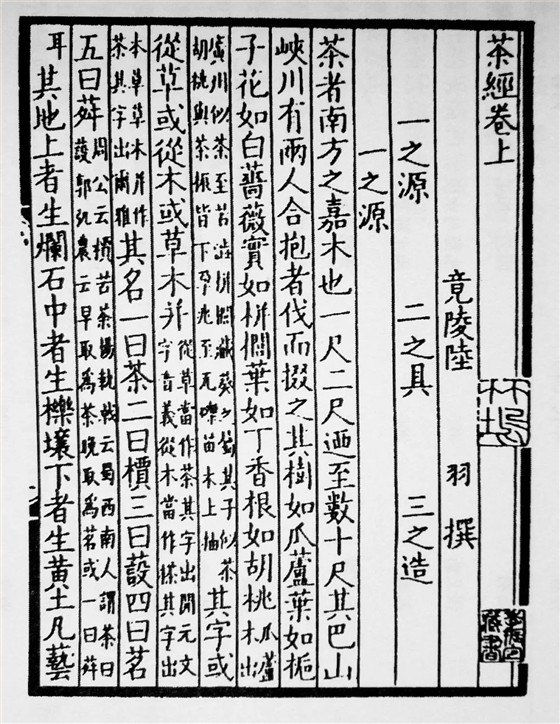 茶經卷上
竟陵陸羽撰
一之源 二之具 三之造
一之源
茶者南方之嘉木也一尺二尺迺至數十尺其巴山
峽川有兩人合抱者伐而掇之其樹如瓜蘆葉如梔
子花如白薔薇實如栟櫚葉如丁香根如胡桃瓜蘆木出
廣州似茶至苦澁栟櫚蒲葵之屬其子似茶
胡桃與茶根皆下孕兆至瓦礫苗木上抽其字或
從草或從木或草木并從草當作茶其字出開元文
字音義從木當作搽其字出
本草草木并作
茶其字出爾雅其名一曰茶二曰檟三曰蔎四曰茗
五曰荈周公云檟苦茶揚執戟云蜀西南人謂茶曰
蔎郭弘農云早取爲茶晚取爲茗或一曰荈
耳其地上者生爛石中者生櫟壤下者生黃土凡藝